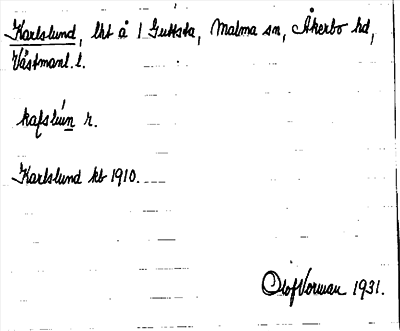 Karlslund, lht å 1 Guttsta, Malma sn, Åkerbo hd,
Västmanl. l.
Karlslund kb 1910.
Olof Norman 1931.